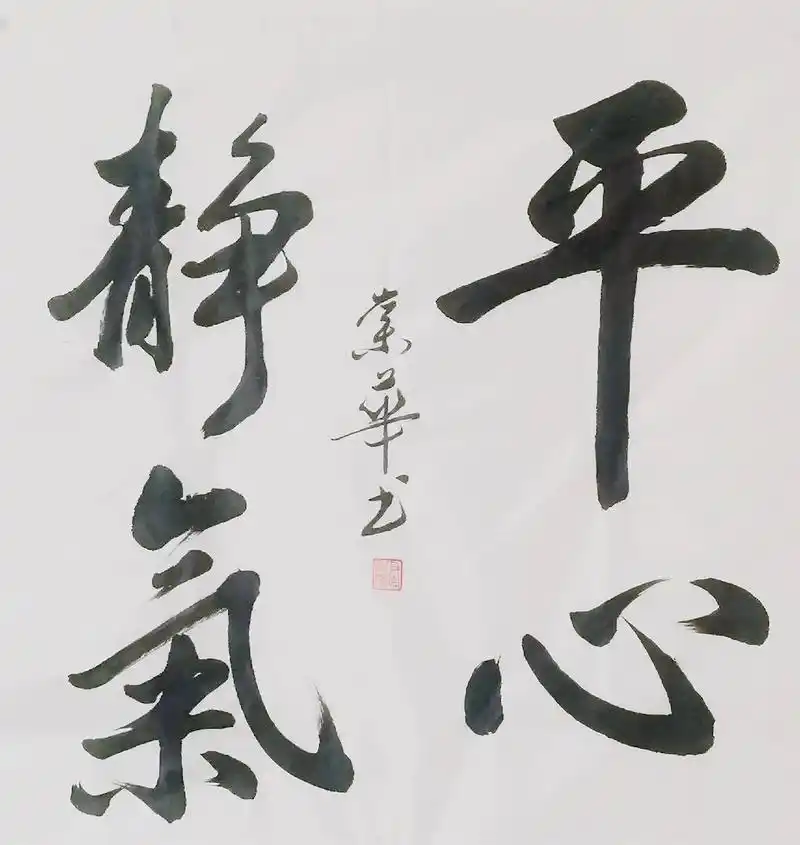 平心
靜氣
業華书